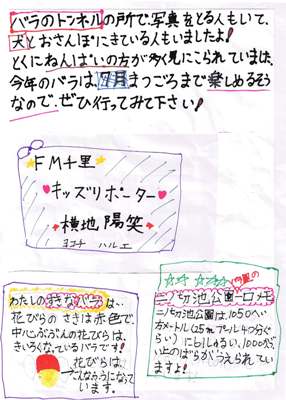 バラのトンネルの所で、写真をとる人もいて、
犬とおさんぽにきている人もいましたよ！
とくにねんぱいの方が多く見にこられていました。
今年のバラは、7月まつごろまで楽しめるそう
なので、ぜひ行ってみて下さい！
FM千里
キッズリポーター
横地陽笑
ヨコチ ハルエ
わたしの好きなバラは、
花びらの さきは赤色で、
中心ぶぶんの花びらは、
きいろくなっているバラです！
花びらは、
こんなふうになって
います。
二ノ切池公園一口メモ
二ノ切池公園は、1050へい
方メートル(25mプール4つ分ぐ
らい)に しゅるい、1000かぶ
い上のばらが うえられてい
ますよ！